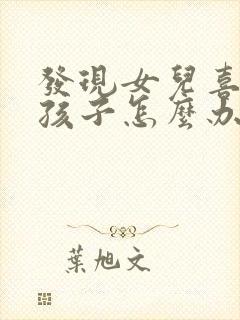 發現女兒喜
孩子怎麼办
葉旭文